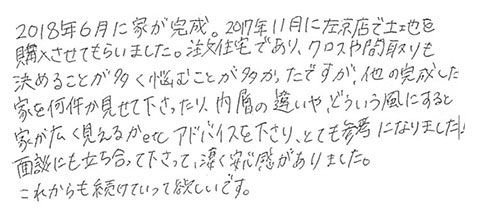 2018年6月に家が完成。2017年11月に左京店で土地を
購入させてもらいました。注文住宅であり、クロスや間取りも
決めることが多く悩むことが多かたですが、他の完成した
家を何件か見せて下さったり、内層の違いや、どういう風にすると
家が広く見えるかetc アドバイスを下さり、とても参考になりました!
面談にも立ち合って下さって、凄く安心感がありました。
これからも続けていって欲しいです。